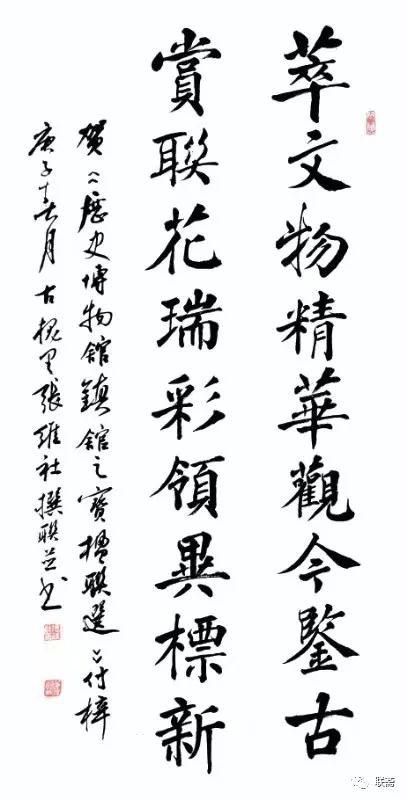 萃文物精華觀今鑒古
賞聯花瑞彩領異標新
賀《歷史博物館鎮館之寶楹聯選》付梓
庚子月古槐里張維社撰聯並書
联斋